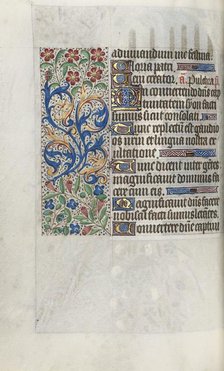 adiuuandum me festina
Gloria patri
eni creator. a. Pulchra
n conuertendo dns cap
tiuitatem syon facti
sumus sicut consolati
Tunc repletum est gaudio
os nrm et lingua nostra ex
ultatione
Tunc dicent inter gētes
magnificauit dominus fa
cere cum eis
Magnificauit dns facere
nobiscū facti sumus letātes
Conuertere dne captiui